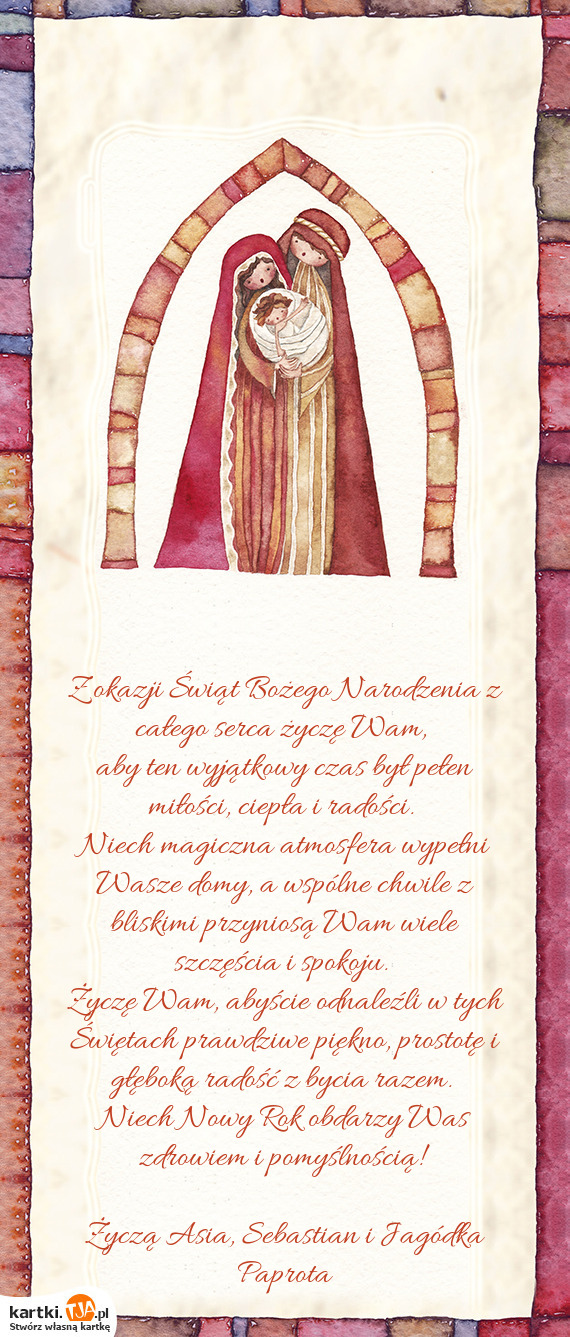 Z okazji Świąt Bożego Narodzenia z
całego serca życzę Wam,
aby ten wyjątkowy czas był pełen
miłości, ciepła i radości.
Niech magiczna atmosfera wypełni
Wasze domy, a wspólne chwile z
bliskimi przyniosą Wam wiele
szczęścia i spokoju.
Życzę Wam, abyście odnaleźli w tych
Świętach prawdziwe piękno, prostotę i
głęboką radość z bycia razem.
Niech Nowy Rok obdarzy Was
zdrowiem i pomyślnością!
Życzą Asia, Sebastian i Jagódka
Paprota
kartki.TJA.pl
Stwórz własną kartkę